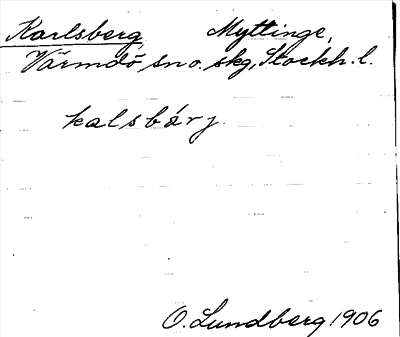 Karlsberg Myttinge,
Värmdö sn o. skg, Stockh. l.
kalsbárj.
O. Lundberg 1906